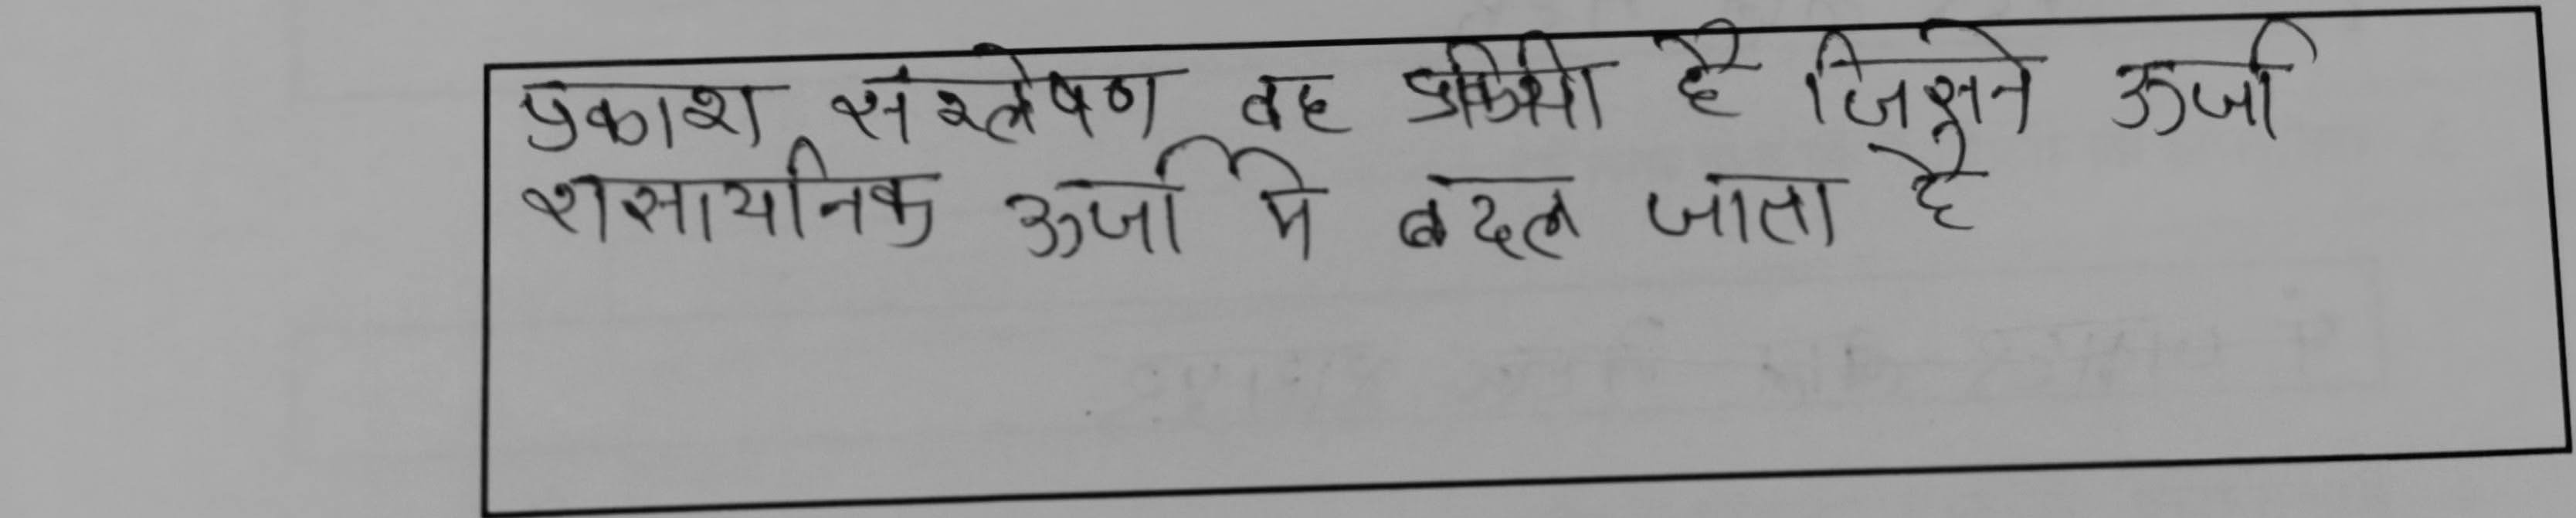 प्रकाश संश्लेषण वह है जिसने ऊर्जा
रासायनिक ऊर्जा मे बदल जाता है